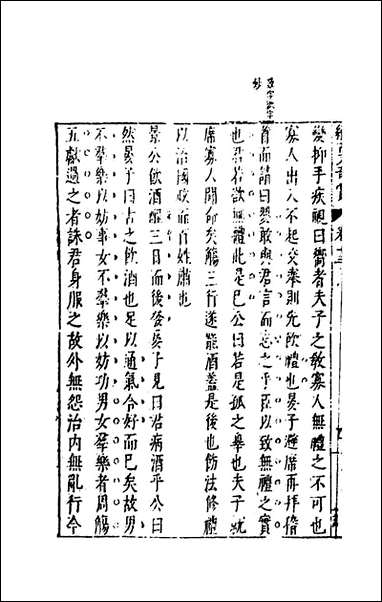 奇賞 卷十三
變抑手疾視曰嚮者夫子之教寡人無禮之不可也
寡人出入不起交舉則先飲禮也晏子避席而再拜稽
首而請曰嬰敢與君言而忘之乎臣以致無禮之實
也君若欲無禮此是已公曰若是孤之辠也夫子就
席寡人聞命矣觴三行遂罷酒蓋是後也飭法修禮
以治國政而百姓肅也
景公飲酒酲三日而後發晏子見曰君病酒乎公曰
然晏子曰古之飲酒也足以通氣合好而已矣故男
不羣樂以妨事女不羣樂以妨功男女羣樂者周觴
五獻過之者誅君身服之故外無怨治內無亂行今